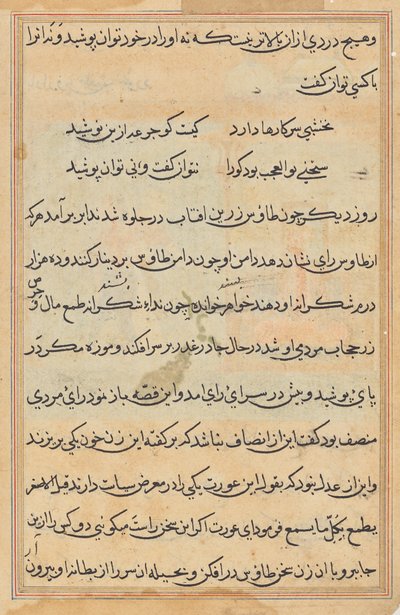 وهیچ دردی ازان بالاتر نیست که نه اورا در خود توان پوشید و نه انرا
باکسی توان گفت
نخشبی سر کارها دارد کیست کو جرعه ازین نوشید
سخنی بوالعجب بود کورا نتوان گفت ونی توان پوشید
روز دیگر چون طاؤس زرین افتاب در جلوه شد ندا بر برآمد هرکه
از طاوس رای نشان دهد دامن او چون دامن طاؤس بر دینار کنند و ده هزار
درم شکرانه او دهند خواهر خوانده چون نداء شکرانه طمع مال و
زر حجاب مردی او شد در حال چادر غدر بر سر افکند و موزه مکر در
پای پوشید و پیش در سرای رای امد و این قصه باز نمود رای مردی
منصف بود گفت این از انصاف نباشد که بر گفته این زن خون یکی بریزند
و این از عدل نبود که بقول این عورت یکی را در معرض سیاست دارند
یطمع بکل ما یسمع فرمود ای عورت اگر این سخن راست میگوئی دو کس را ازین
جا ببر و با ان زن سخن طاؤس در افکن و بحیله ان سر را از بطانه او بیرون
آر